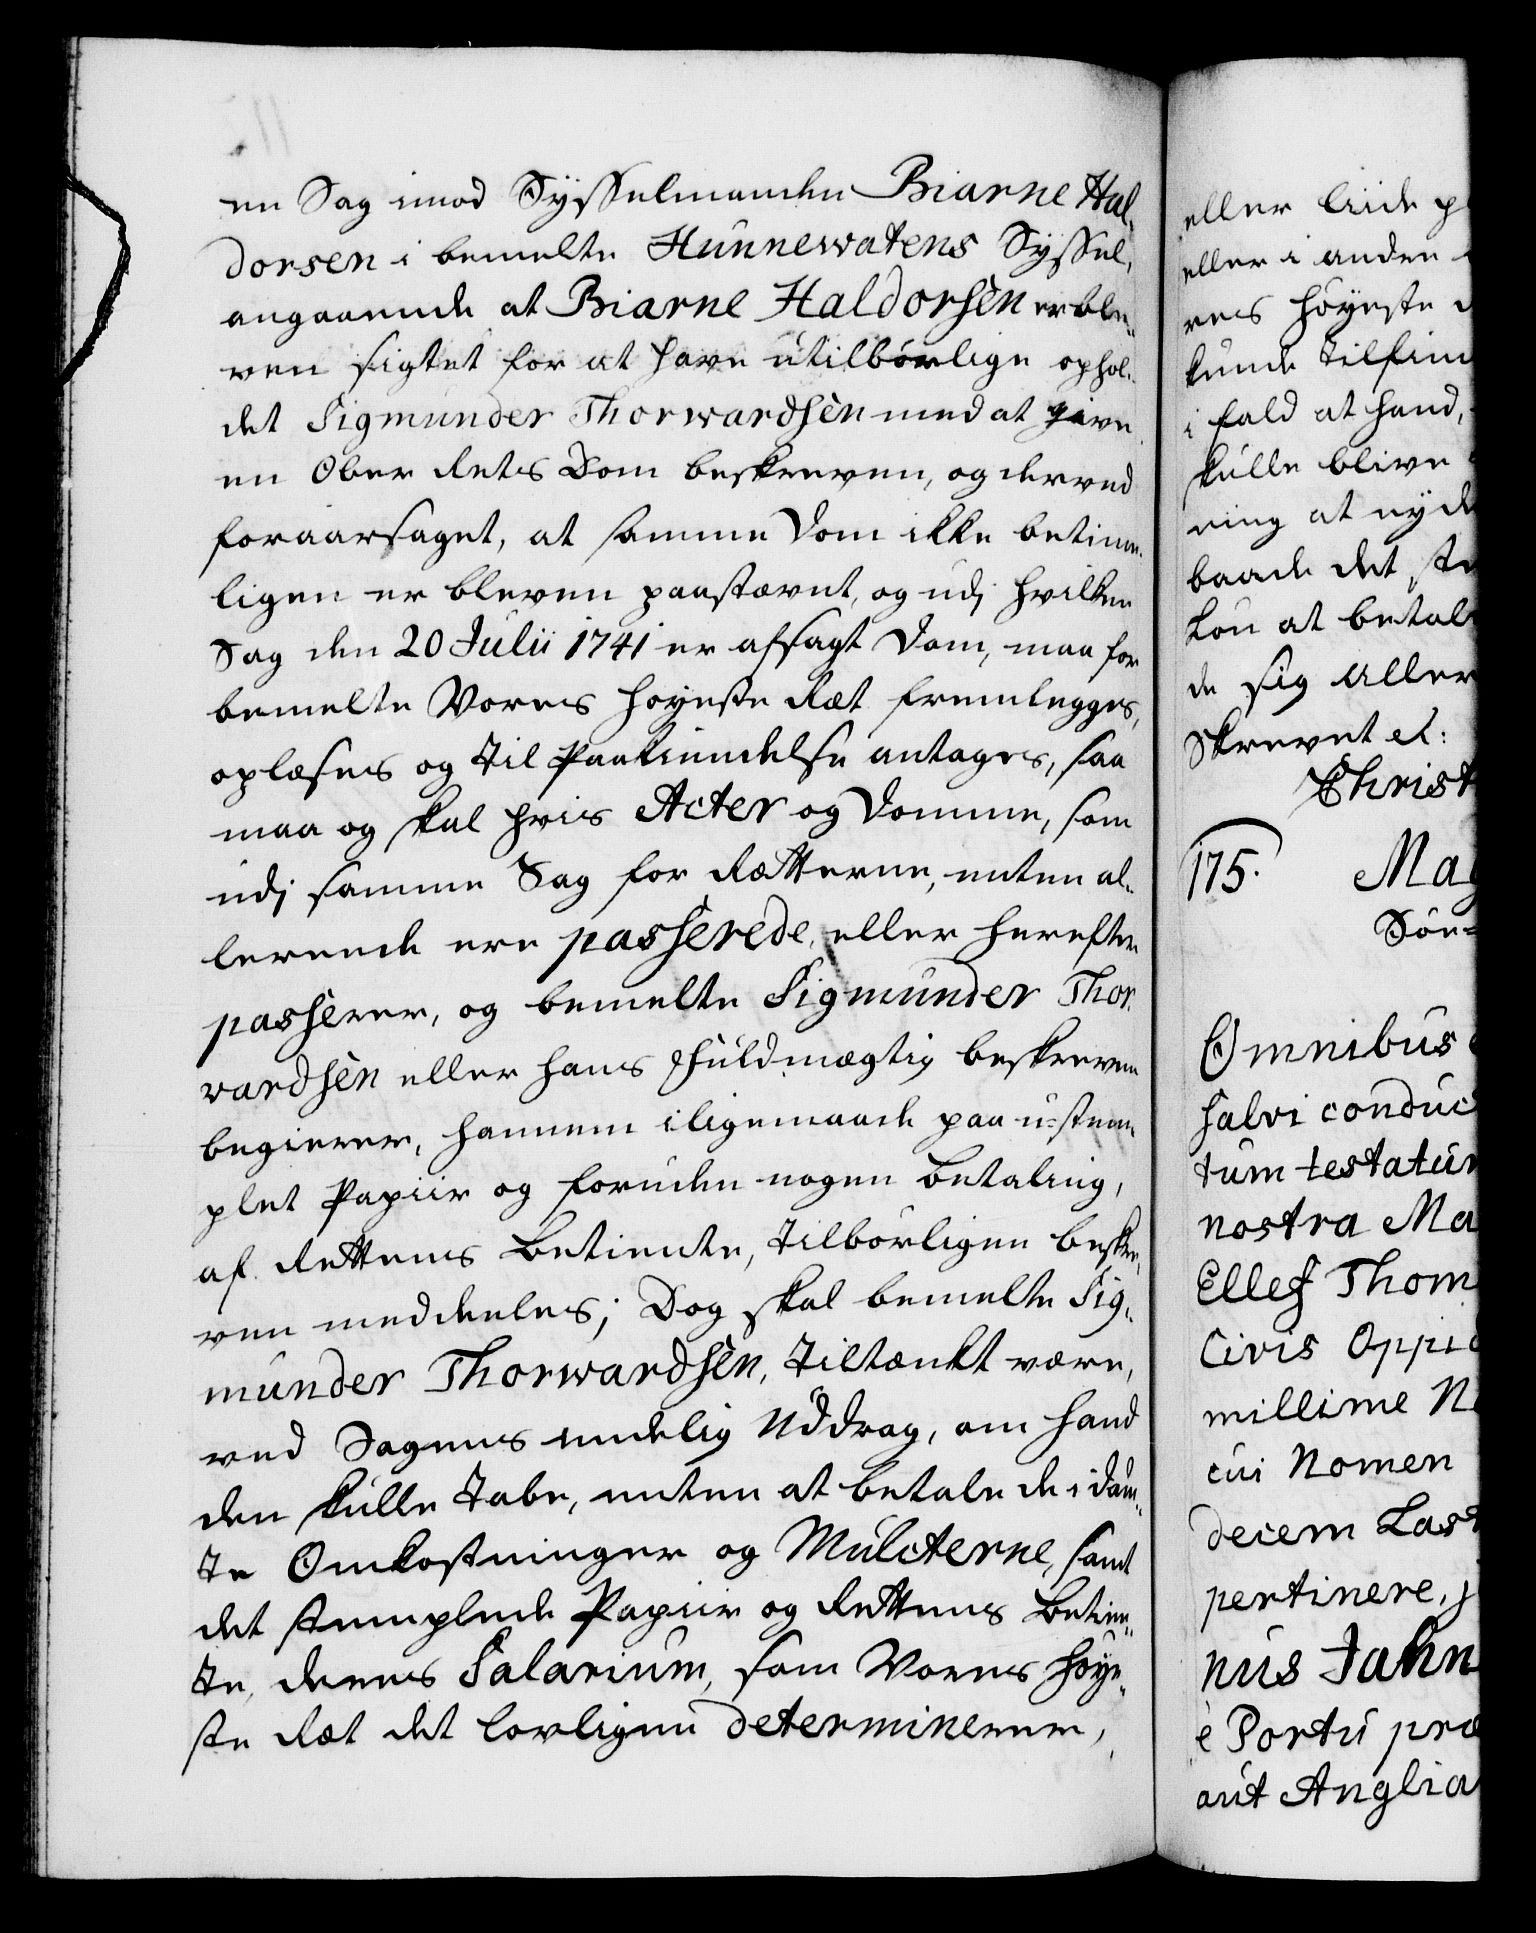 en Sag imod Sysselmanden Biarne Hal-
dorsen i bemelte Hunnewatens Syssel,
angaaende at Biarne Haldorsen er ble-
ven sigtet for at have utilbørlige ophol-
det Sigmunder Thorwardsen med at give
en Ober Rets Dom beskreven, og derved
foraarsaget, at samme Dom ikke betime-
ligen er bleven paastævnt, og udj hvilken
Sag den 20 Julii 1741 er afsagt Dom, maa for
bemelte Vores Høyeste Ræt fremlegges,
oplæses og til Paakiendelse antages, saa
maa og skal hvis Acter og Domme, som
udj samme Sag for Rætterne, enten al-
lereede ere passerede, eller herefter
passerer, og bemelte Sigmunder Thor-
vardsen eller hans Fuldmægtig beskreven
begierer, hannem iligemaade paa u-stem-
plet Papiir og foruden nogen Betaling,
af Rettens Betiente, tilbørligen beskre-
ven meddeeles; Dog skal bemelte Sig-
munder Thorwardsen, tiltænkt være,
ved Sagens endelig Uddrag, om hand
den skulle tabe, enten at betale de i døm-
te Omkostninger og Mulcterne, samt
det stemplede Papiir og Rettens Betien-
te, deres Salarium, som Vores Høye-
ste Ræt det lovligen determinerer,
eller liide p
eller i anden
res Høyeste
kunde tilfin
i fald at hand,
skulle blive
ring at nyde
baade det ste
Lon at betale
de sig aller
Skrevet et:
Christ
175. Mag
Søe-
Omnibus
salvi conduc
tum testatur
nostra Ma
Ellef Thom
Civis Oppid
millime N
cui Nomen
decem Last
pertinere,
nus Jahn
e Portu præ
aut Anglia